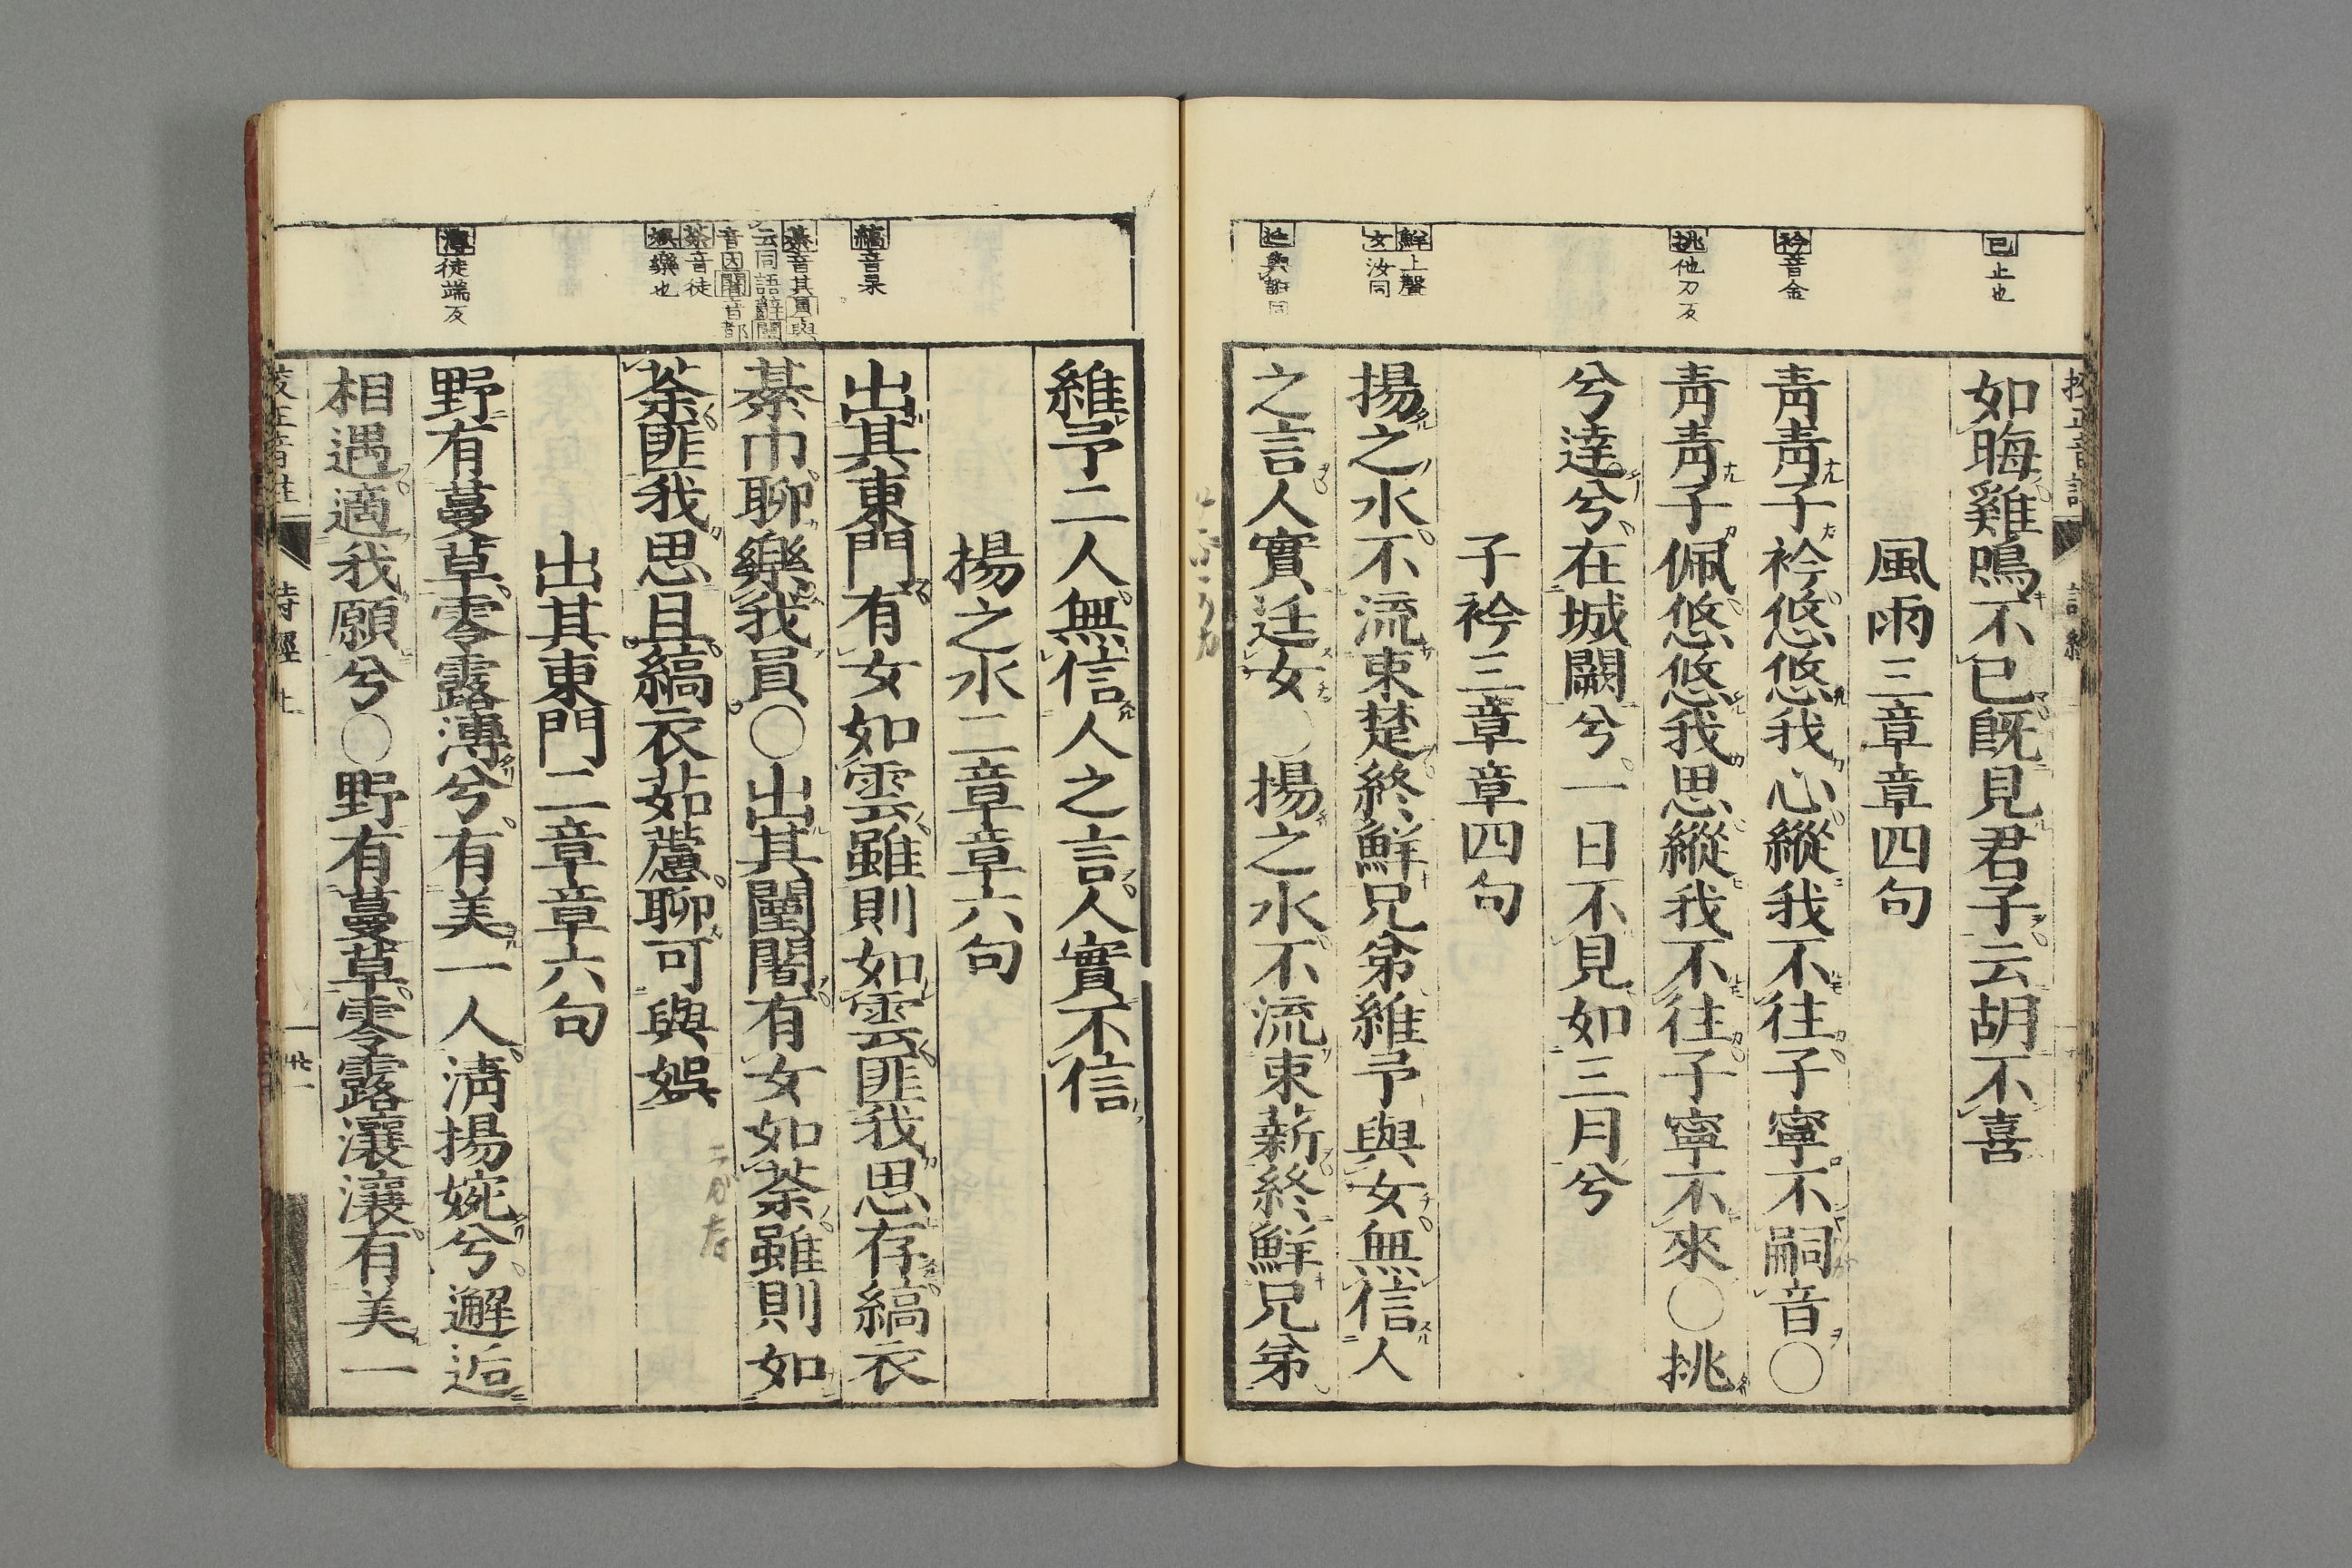 已止也
衿音金
挑他刀反
鮮上聲
女汝同
如晦雞鳴不已旣見君子云胡不喜
風雨三章章四句
靑靑子衿悠悠我心縱我不往子寧不嗣音〇
靑靑子佩悠悠我思縱我不往子寧不來〇挑
兮達兮在城闕兮一日不見如三月兮
子衿三章章四句
揚之水不流束楚終鮮兄弟維予與女無信人
之言人實迋女〇揚之水不流束薪終鮮兄弟
縞音杲
綦音其員與
云同語辭闉
音因闍音都
荼音徒
娛樂也
漙徒端反
維予二人無信人之言人實不信
揚之水二章章六句
出其東門有女如雲雖則如雲匪我思存縞衣
綦巾聊樂我員〇出其闉闍有女如荼雖則如
荼匪我思且縞衣茹藘聊可與娛
出其東門二章章六句
野有蔓草零露漙兮有美一人淸揚婉兮邂逅
相遇適我願兮〇野有蔓草零露瀼瀼有美一
校正音註 詩經上 廿一